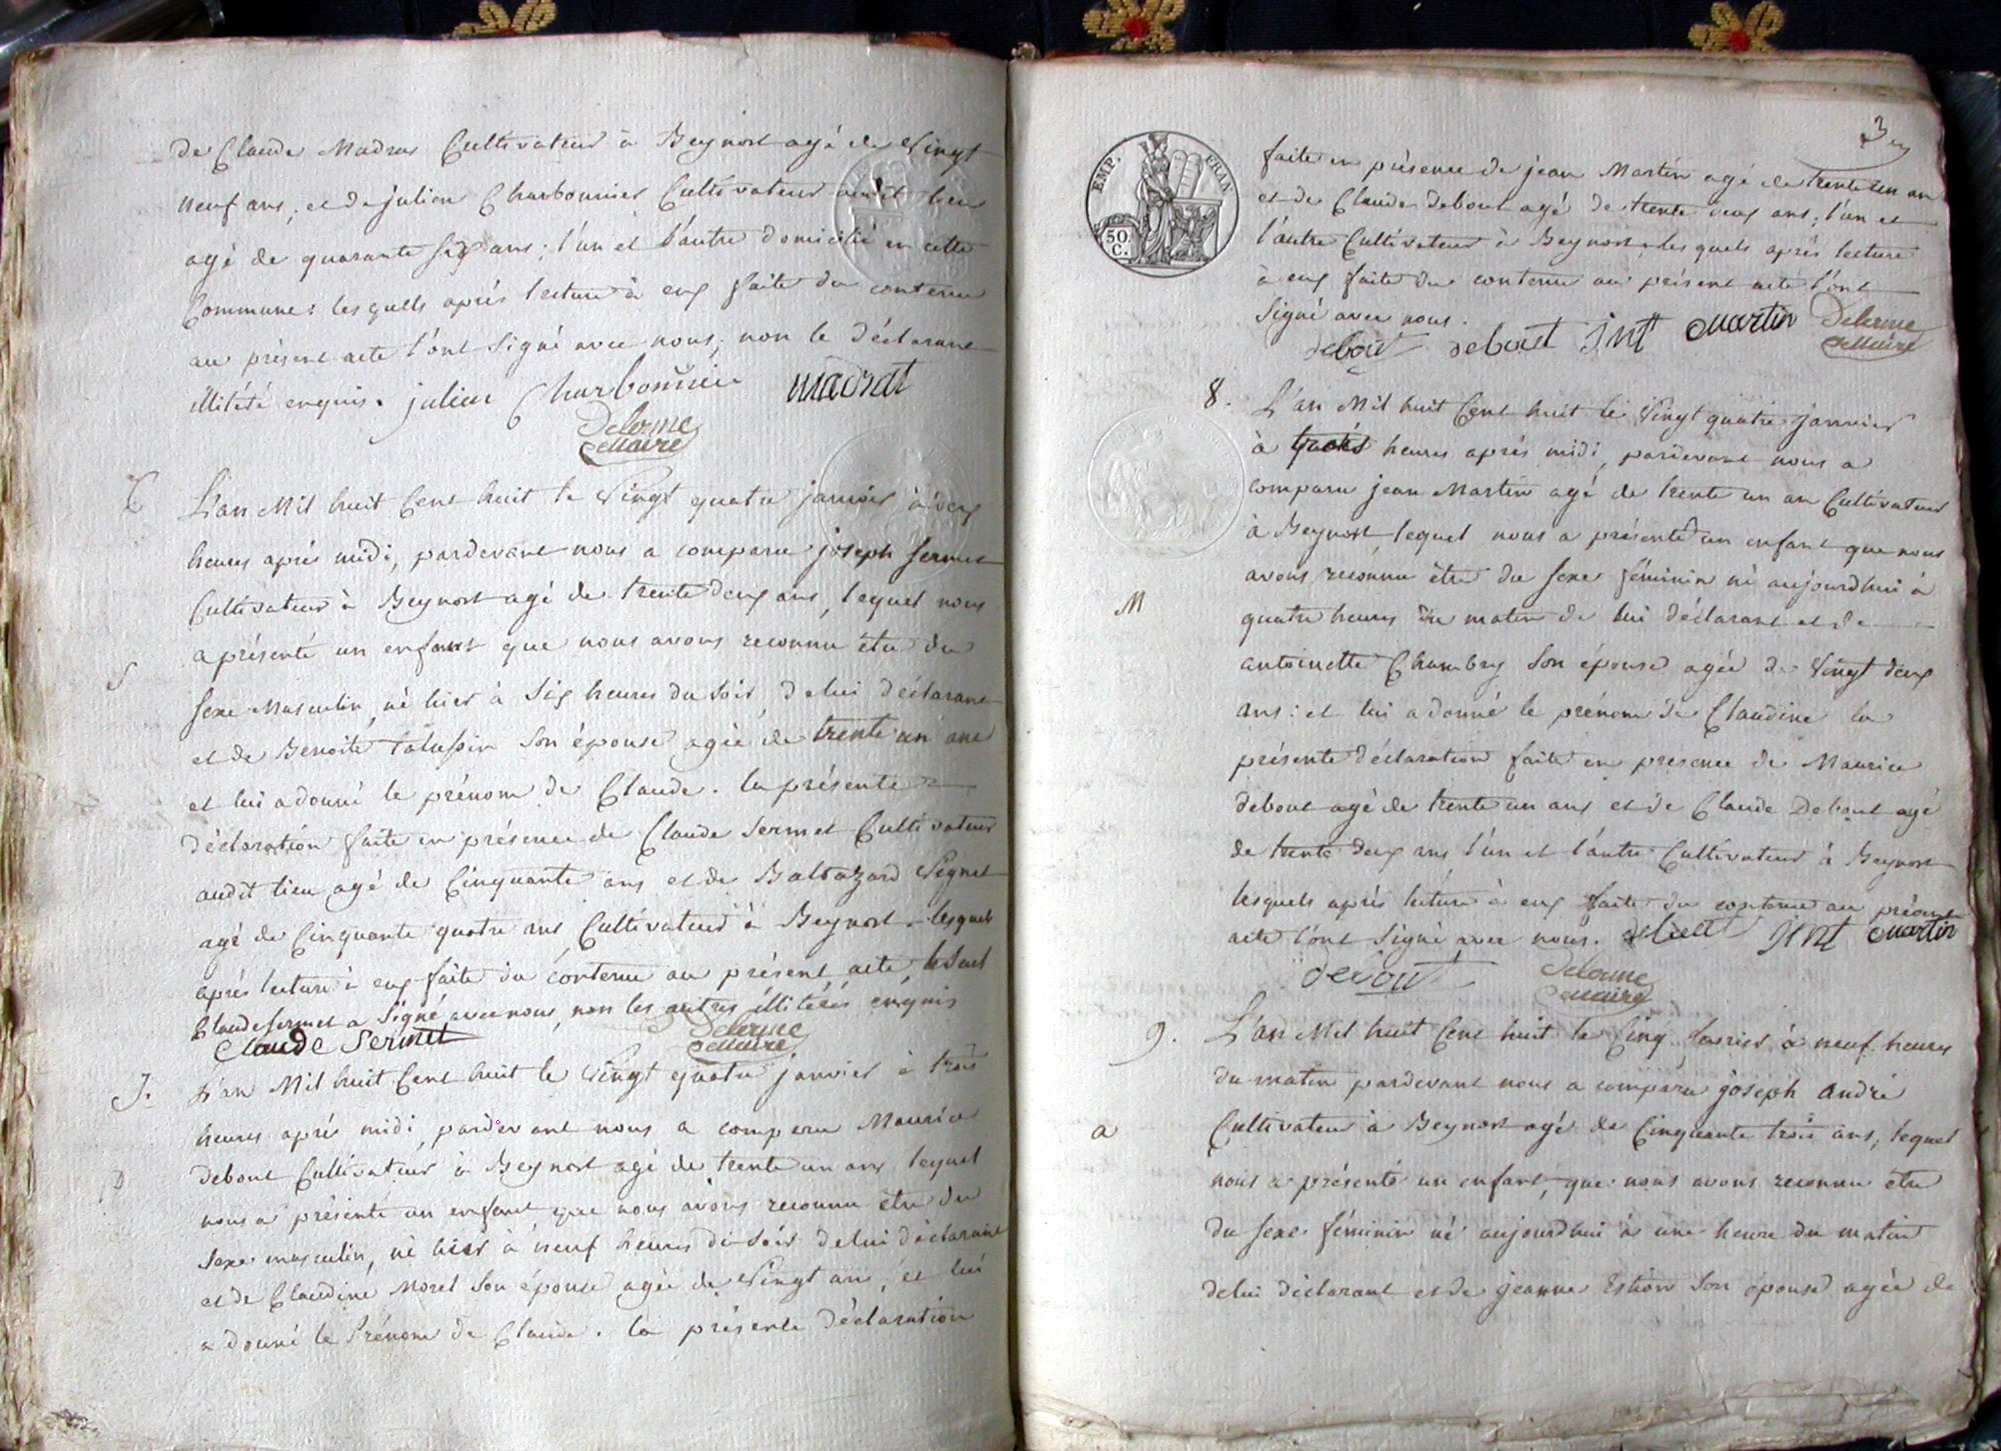 de Claude Madras Cultivateur à Beynost agé de Vingt
neuf ans, et de julien Charbonnier Cultivateur audit lieu
agé de quarante six ans; l'un et l'autre domicilié en cette
Commune: lesquels aprés lecture à eux faite du contenu
au présent acte l'ont Signé avec nous, non le déclarant
illitéré enquis. julien Charbonnier madrat
Delorme
Maire
6 L'an Mil huit Cent huit le Vingt quatre janvier à deux
heures aprés midi, pardevant nous a comparu joseph Sermet
Cultivateur à Beynost agé de trente deux ans, lequel nous
a présenté un enfant que nous avons reconnu être du
S
sexe Masculin, né hier à Six heures du Soir, de lui déclarant
et de Benoite son épouse agée de trente un ans
et lui a donné le prénom de Claude. la présente
déclaration faite en présence de Claude Sermet Cultivateur
audit lieu agé de Cinquante ans et de Baltazard Vignet
agé de Cinquante quatre ans Cultivateur à Beynost. lesquels
aprés lecture à eux faite du contenu au présent acte, le Seul
Claude Sermet a Signé avec nous, non les autres illitérés enquis
Claude Sermet Delorme
Maire
7. L'an Mil huit Cent huit le Vingt quatre janvier à trois
heures aprés midi, pardevant nous a comparu Maurice
debout Cultivateur à Beynost agé de trente un ans, lequel
D
nous a présenté un enfant que nous avons reconnu être du
Sexe masculin, né hier à neuf heures du Soir de lui déclarant
et de Claudine Morel Son épouse agée de Vingt ans, et lui
a donné le Prénom de Claude. la présente déclaration
3
EMP. FRAN.
50. C.
faite en présence de jean Martin agé de trente un an
et de Claude debout agé de trente deux ans; l'un et
l'autre Cultivateur à Beynost, lesquels aprés lecture
à eux faite du contenu au présent acte l'ont
Signé avec nous.
debout debout martin Delorme
Maire
8. L'an Mil huit Cent huit le Vingt quatre janvier
à heures aprés midi, pardevant nous a
comparu jean Martin agé de trente un an Cultivateur
à Beynost lequel nous a présenté un enfant que nous
avons reconnu être du Sexe féminin né aujourdhui à
M
quatre heures du matin de lui déclarant et de
antoinette Chambry Son épouse agée de Vingt deux
ans: et lui a donné le prénom de Claudine la
présente déclaration faite en presence de Maurice
debout agé de trente un ans et de Claude Debout agé
de trente deux ans l'un et l'autre Cultivateur à Beynost
lesquels aprés lecture à eux faite du contenu au présent
acte l'ont Signé avec nous. debout martin
debout Delorme
Maire
9. L'an Mil huit Cent huit le Cinq favrier à neuf heures
du matin pardevant nous a comparu joseph andré
a
Cultivateur à Beynost agé de Cinquante trois ans, lequel
nous a présenté un enfant, que nous avons reconnu être
du Sexe féminin né aujourdhui à une heure du matin
de lui déclarant et de jeanne Estion Son épouse agée de